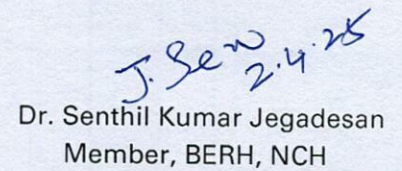 J. Sen
2.4.25
Dr. Senthil Kumar Jegadesan
Member, BERH, NCH